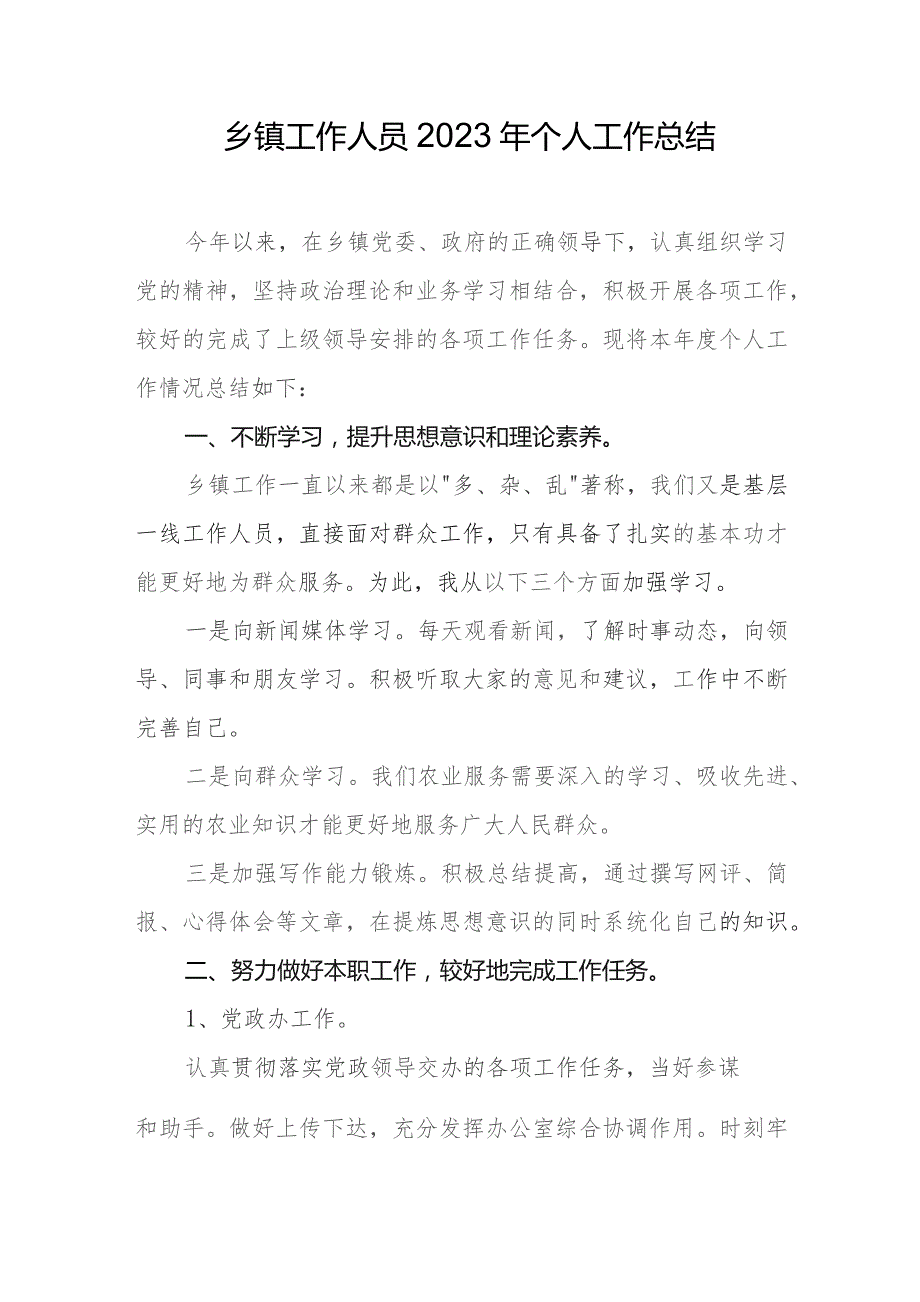 乡镇工作人员 2023 年个人工作总结
今年以来，在乡镇党委、政府的正确领导下，认真组织学习
党的精神，坚持政治理论和业务学习相结合，积极开展各项工作，
较好的完成了上级领导安排的各项工作任务。现将本年度个人工
作情况总结如下：
一、不断学习，提升思想意识和理论素养。
乡镇工作一直以来都是以"多、杂、乱"著称，我们又是基层
一线工作人员，直接面对群众工作，只有具备了扎实的基本功才
能更好地为群众服务。为此，我从以下三个方面加强学习。
一是向新闻媒体学习。每天观看新闻，了解时事动态，向领
导、同事和朋友学习。积极听取大家的意见和建议，工作中不断
完善自己。
二是向群众学习。我们农业服务需要深入的学习、吸收先进、
实用的农业知识才能更好地服务广大人民群众。
三是加强写作能力锻炼。积极总结提高，通过撰写网评、简
报、心得体会等文章，在提炼思想意识的同时系统化自己的知识。
二、努力做好本职工作，较好地完成工作任务。
1、党政办工作。
认真贯彻落实党政领导交办的各项工作任务，当好参谋
和助手。做好上传下达，充分发挥办公室综合协调作用。时刻牢